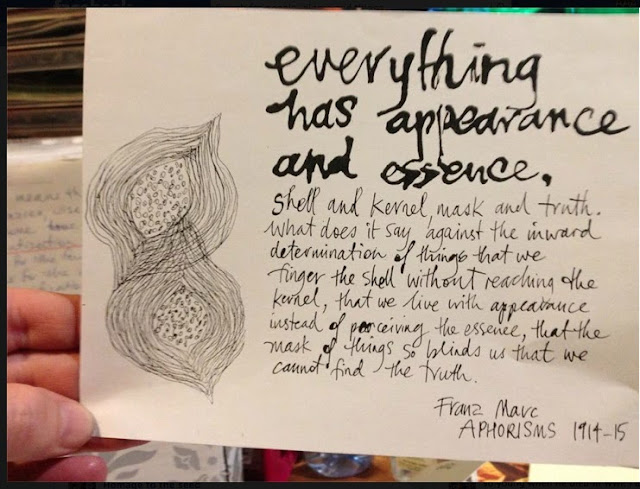 everything
has appearance
and essence.
Shell and kernel, mask and truth.
What does it say against the inward
determination of things that we
finger the shell without reaching the
kernel, that we live with appearance
instead of perceiving the essence, that the
mask of things so blinds us that we
cannot find the truth.
Franz Marc
APHORISMS 1914-15
means